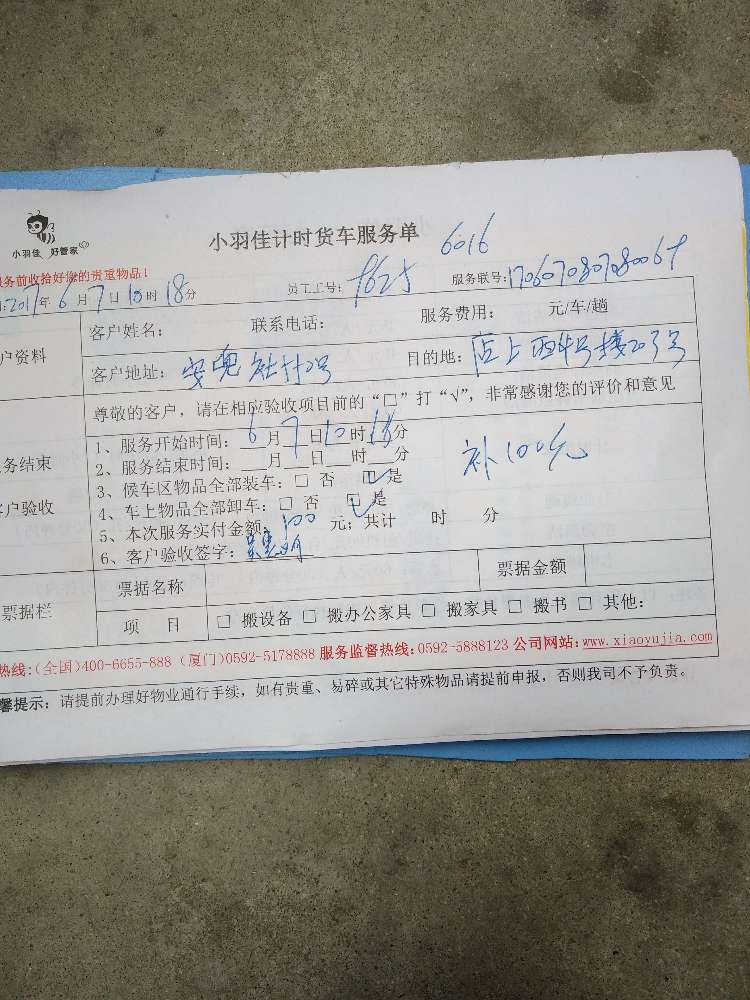 小羽佳 好管家
小羽佳计时货车服务单 6016
务前收拾好您的贵重物品！
2017年6月7日10时18分 员工工号： 服务联号:
户资料
客户姓名： 联系电话： 服务费用： 元/车/趟
客户地址： 目的地：店上西
尊敬的客户，请在相应验收项目前的“□”打“√”，非常感谢您的评价和意见
务结束
户验收
1、服务开始时间：6月7日10时18分
2、服务结束时间：___月___日___时___分
补100元
3、候车区物品全部装车：□ 否 ☑是
4、车上物品全部卸车：□ 否 ☑是
5、本次服务实付金额：100元；共计 时 分
6、客户验收签字：
票据栏
票据名称 票据金额
项 目 □ 搬设备 □ 搬办公家具 □ 搬家具 □ 搬书 □ 其他：
热线:(全国)400-6655-888 (厦门)0592-5178888 服务监督热线:0592-5888123 公司网站:www.xiaoyujia.com
馨提示：请提前办理好物业通行手续，如有贵重、易碎或其它特殊物品请提前申报，否则我司不予负责。